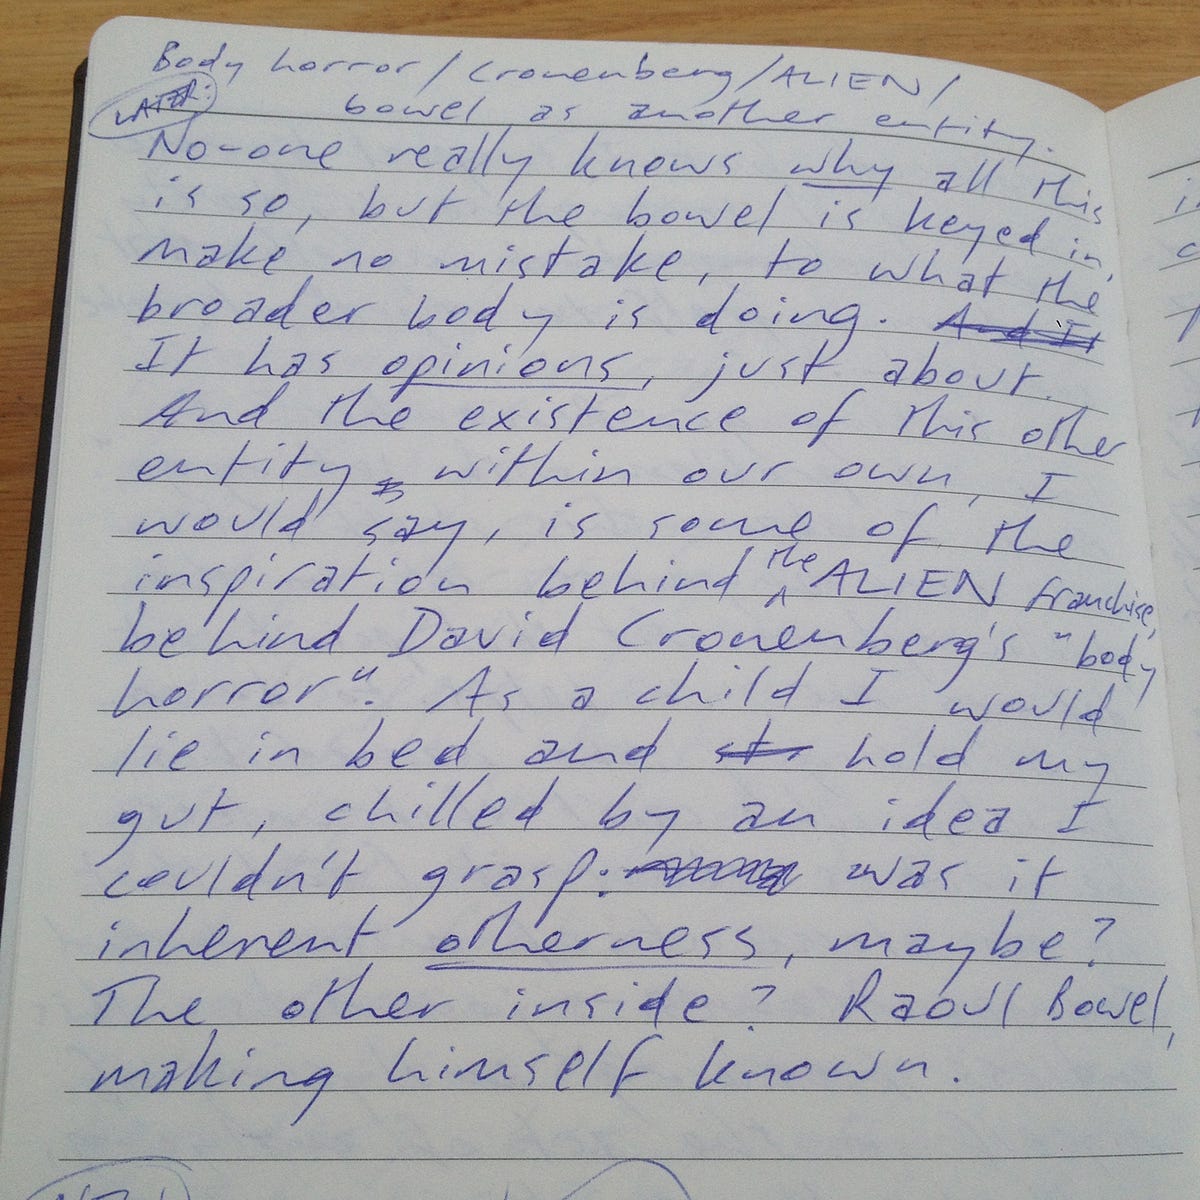 Body horror/Cronenberg/ALIEN/
LATER:
bowel as another entity.
No-one really knows why all this
is so, but the bowel is keyed in,
make no mistake, to what the
broader body is doing. And It
It has opinions, just about.
And the existence of this other
entity within our own, I
would say, is some of the
inspiration behind the ALIEN franchise,
behind David Cronenberg's "body
horror". As a child I would
lie in bed and hold my
gut, chilled by an idea I
couldn't grasp: was it
inherent otherness, maybe?
The other inside? Raoul Bowel,
making himself known.